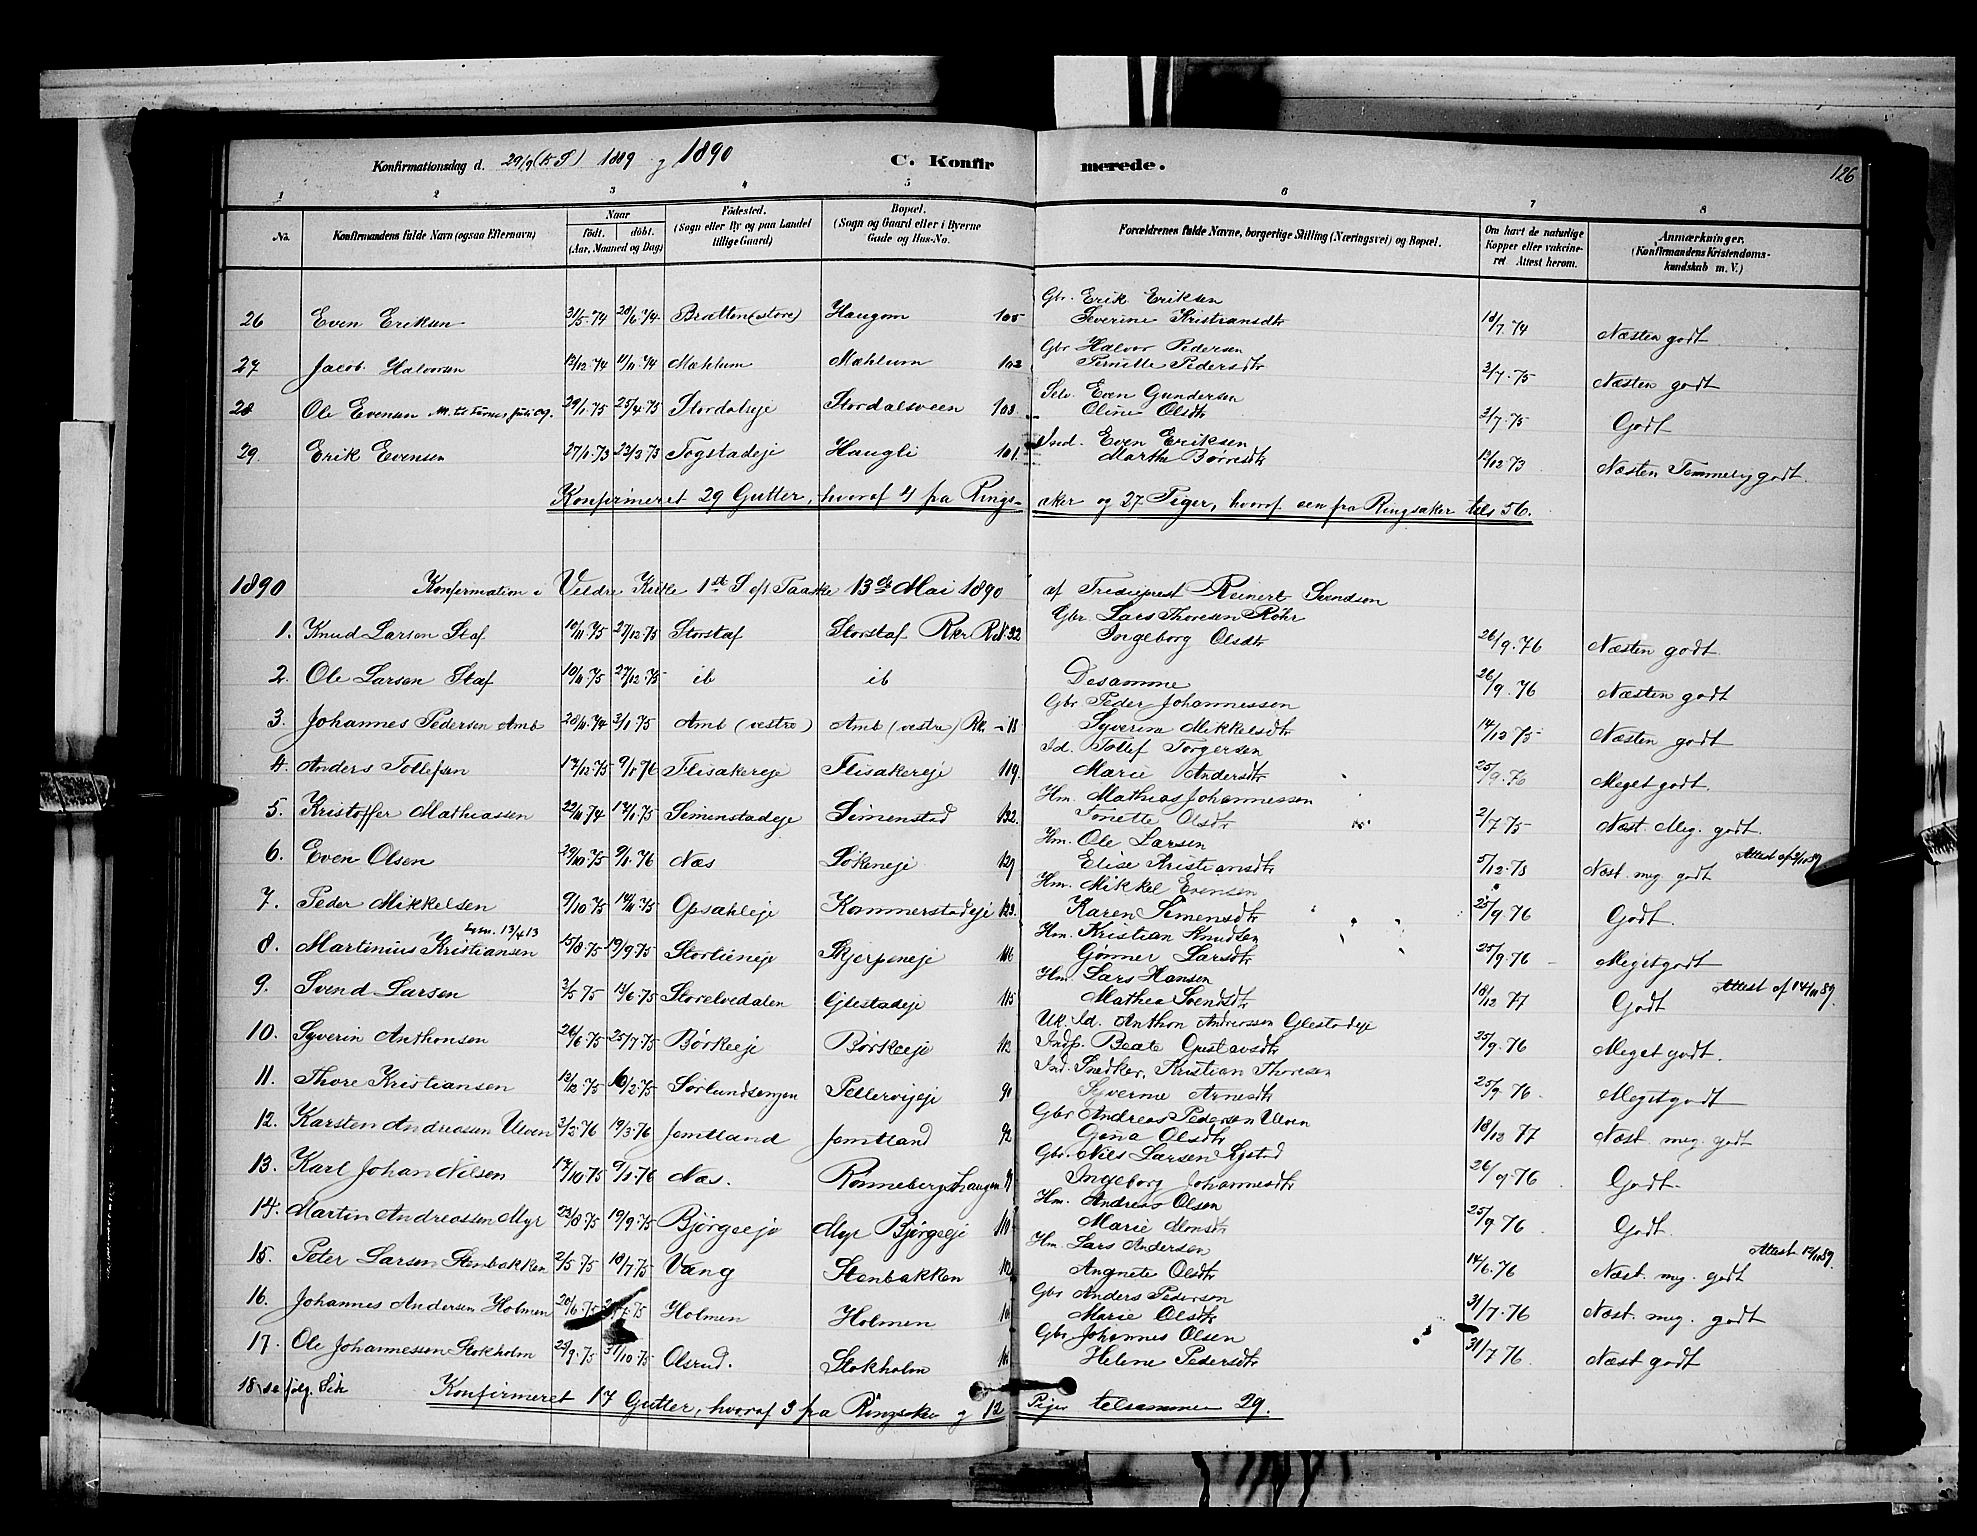 Konfirmationsdag d. 29/9 1889 og 1890 C. Konfirmerede. 126
1 2 3 4 5 6 7 8
No. Konfirmandens fulde Navn (ogsaa Efternavn) Naar født. døbt. (Aar, Maaned og Dag) Fødested. (Sogn eller By og paa Landet tillige Gaard) Bopæl. (Sogn og Gaard eller i Byerne Gade og Hus-No. Forældrenes fulde Navne, borgerlige Stilling (Næringsvei) og Bopæl. Om havt de naturlige Kopper eller vakcineret Attest herom. Anmærkninger. (Konfirmandens Kristendomskundskab m. V.)
Gbr. Erik Eriksen
26 Even Eriksen 31/5 74 28/6 74 Bratten (store) Haugom 105 Severine Kristiansdtr 18/7 74 Næsten godt
Gbr Halvor Pedersen
27 Jacob Halvorsen 13/12 74 11/11 74 Mæhlum Mæhlum 102 Pernille Pedersdtr 2/7 75 Næsten godt
Selv. Even Gundersen
28 Ole Evensen 29/1 75 25/4 75 Stordaleje Stordalsveen 108 Oline Olsdtr 2/7 75 Godt
Ind. Even Eriksen
29. Erik Evensen 27/1 73 23/3 73 Togstadeje Haugli 101. Marthe Børresdtr 13/12 73 Næsten Temmelig godt.
Konfirmeret 29 Gutter, hvoraf 4 fra Ringsaker og 27 Piger, hvoraf een fra Ringsaker tils 56.
1890 Konfirmation i Veldre Kirke 1st S eft Paaske 13de Mai 1890 af Tredieprest Reinert Svendsen
Gbr. Lars Thoresen Røhr
1. Knud Larsen Staf 10/11 75 27/12 75 Storstaf Storstaf Rkr. R No 22 Ingeborg Olsdtr 26/9 76 Næsten godt
2. Ole Larsen Staf 10/11 75 27/12 75 ib ib Desamme 26/9 76 Næsten godt
Gbr Peder Johannessen
3. Johannes Pedersen Amb 28/11 74 3/1 75 Amb (vestre) Amb (vestre) Rk. - 18 Syverin Mikkelsdtr 14/12 75 Næsten godt
Id. Tollef Torgersen
4. Anders Tollefsen 17/12 75 9/1 76 Flisakereje Flisakereje 119. Marie Andersdtr 25/9 76 Meget godt.
Hm. Mathias Johannessen
5. Kristoffer Mathiassen 22/11 74 17/1 75 Simenstadeje Simenstad 132. Tonette Olsdtr 2/7 75 Næst. Meg. godt.
Hm. Ole Larsen
6. Even Olsen 29/10 75 9/1 76 Næs Søkneje 129 Elise Kristiansdtr 5/12 78 Næst. meg godt
Hm. Mikkel Evensen
7. Peder Mikkelsen 9/10 75 14/11 75 Opsahleje Kommerstadeje 123. Karen Simensdtr 25/9 76 Godt.
Hm. Kristian Knudsen
8. Martinius Kristiansen 15/8 75 19/9 75 Stortieneje Skjerpeneje 116 Gønner Larsdtr 25/9 76 Meget godt
Hm. Lars Hansen
9. Svend Larsen 3/5 75 13/6 75 Storelvedalen Glestadeje 115 Mathea Svendsdtr 18/12 77 Godt Attest af 14/11 89.
Uk. Id. Anthon Andreassen Glestadeje
10. Syverin Anthonsen 26/6 75 25/7 75 Børkeeje Børkeeje 112 Indp. Beate Gustavsdtr 25/9 76 Meget godt.
Ind. Snedker, Kristian Thoresen
11. Thore Kristiansen 13/12 75 10/2 75 Sørlundsengen Pellervigeje 91 Syverine Arnesdtr 25/9 76. Meget godt
Gbr Andreas Pedersen Ulven
12. Karsten Andreassen Ulven 3/2 76 19/3 76 Jemtland Jemtland 92 Gina Olsdtr 18/12 77 Næst. meg. godt
Gbr. Nils Larsen
13. Karl Johan Nilsen 17/10 75 9/1 76 Næs. Rønnebergshaugen Ingeborg Johannesdtr 26/9 76 Godt
Hm. Andreas Olsen
14. Martin Andreassen Myr 23/8 75 19/9 75 Bjørgeeje Myr Bjørgeeje 110 Marie Monsdtr 25/9 76 Godt.
Hm. Lars Andersen
15. Peter Larsen Stenbakken 2/5 75 18/7 75 Vang Stenbakken Angnete Olsdtr 14/6 76 Næst. meg. godt
Gbr Anders Pedersen
16. Johannes Andersen Holmen 20/6 75 Holmen Holmen Marie Olsdtr 31/7 76 Næst. meg. godt
Gbr Johannes Olsen
17. Ole Johannessen Stokholm 24/9 75 31/10 75 Olsrud. Stokholm Helene Pedersdtr 31/7 76 Næst godt
18 se følg. Side Konfirmeret 17 Gutter, hvoraf 3 fra Ringsaker og 12 Piger tilsammen 29.